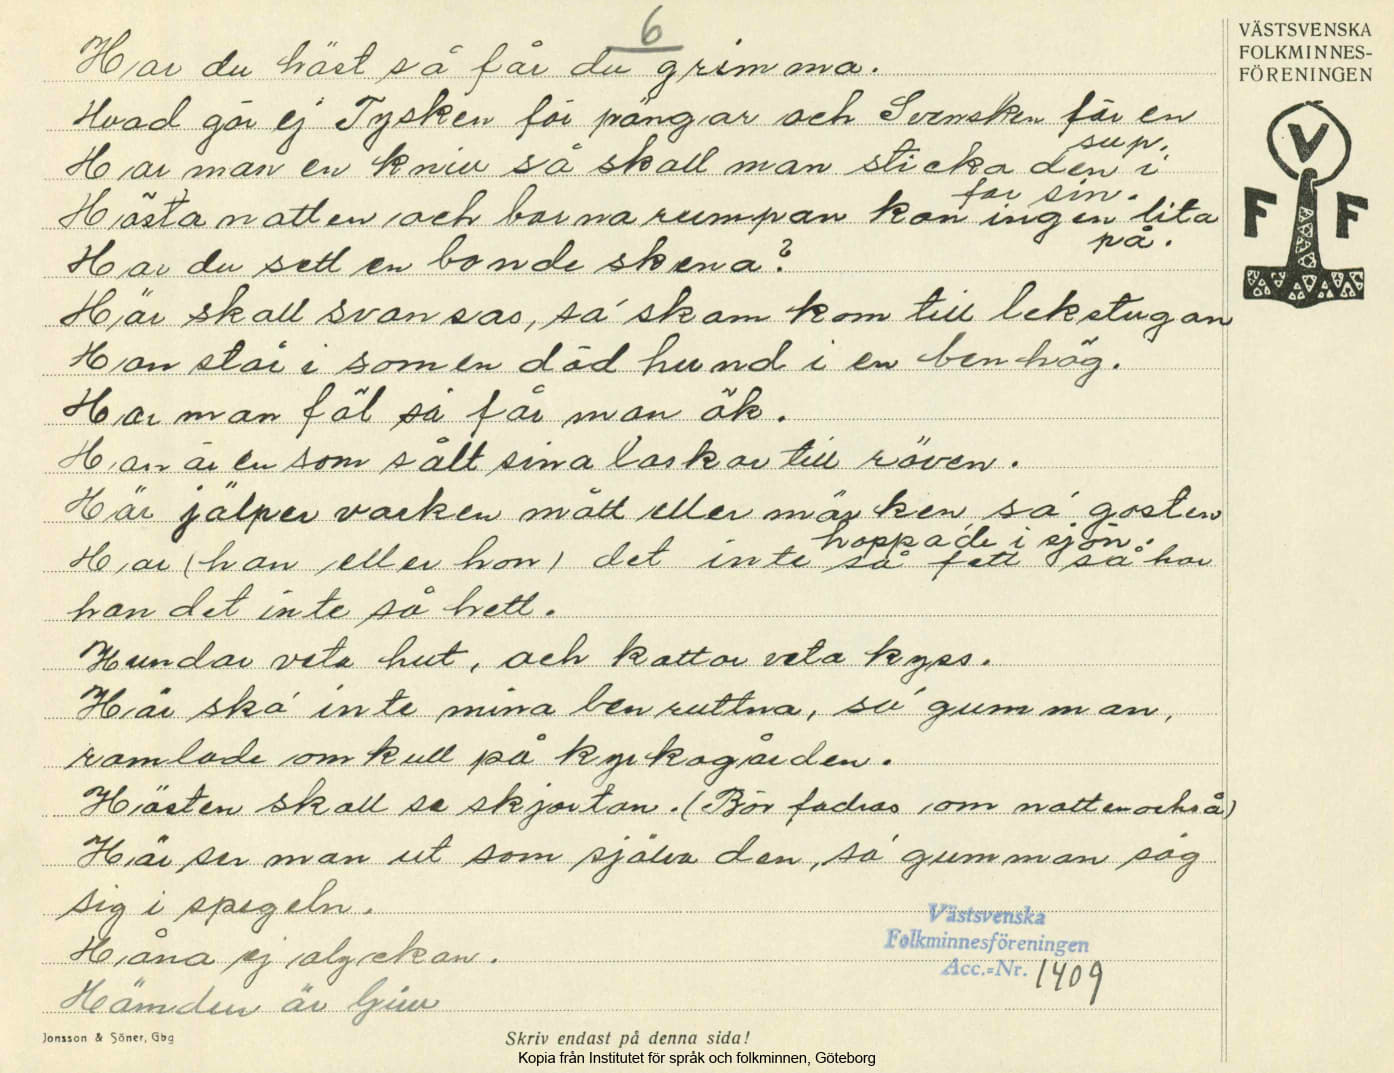 6
VÄSTSVENSKA
FOLKMINNES-
FÖRENINGEN
V
F F
Har du häst så får du grimma.
Hvad gör ej Tysken för pängar och Svensken för en
sup.
Har man en kniv så skall man sticka den i
for sin.
Hästa natten och barna rumpan kan ingen lita
på.
Har du sett en bonde skena?
Här skall svansas, sa' skam kom till lekstugan
Han står i som en död hund i en benhög.
Har man föl så får man ök.
Han är en som sålt sina laskar till räven.
Här jälper varken mått eller märken sa' gosten
hoppade i sjön.
Har (han eller hon) det inte så fett så har
han det inte så hett.
Hundar veta hut, och kattor veta kyss.
Här ska' inte mina ben ruttna, sa' gumman,
ramlade omkull på kyrkogården.
Hästen skall se skjortan. (Bör fodras om natten också)
Här ser man ut som själva den, sa' gumman såg
sig i spegeln.
Håna ej olyckan.
Hämden är ljuv
Västsvenska
Folkminnesföreningen
Acc.=Nr. 1409
Jonsson & Söner, Gbg
Skriv endast på denna sida!
Kopia från Institutet för språk och folkminnen, Göteborg